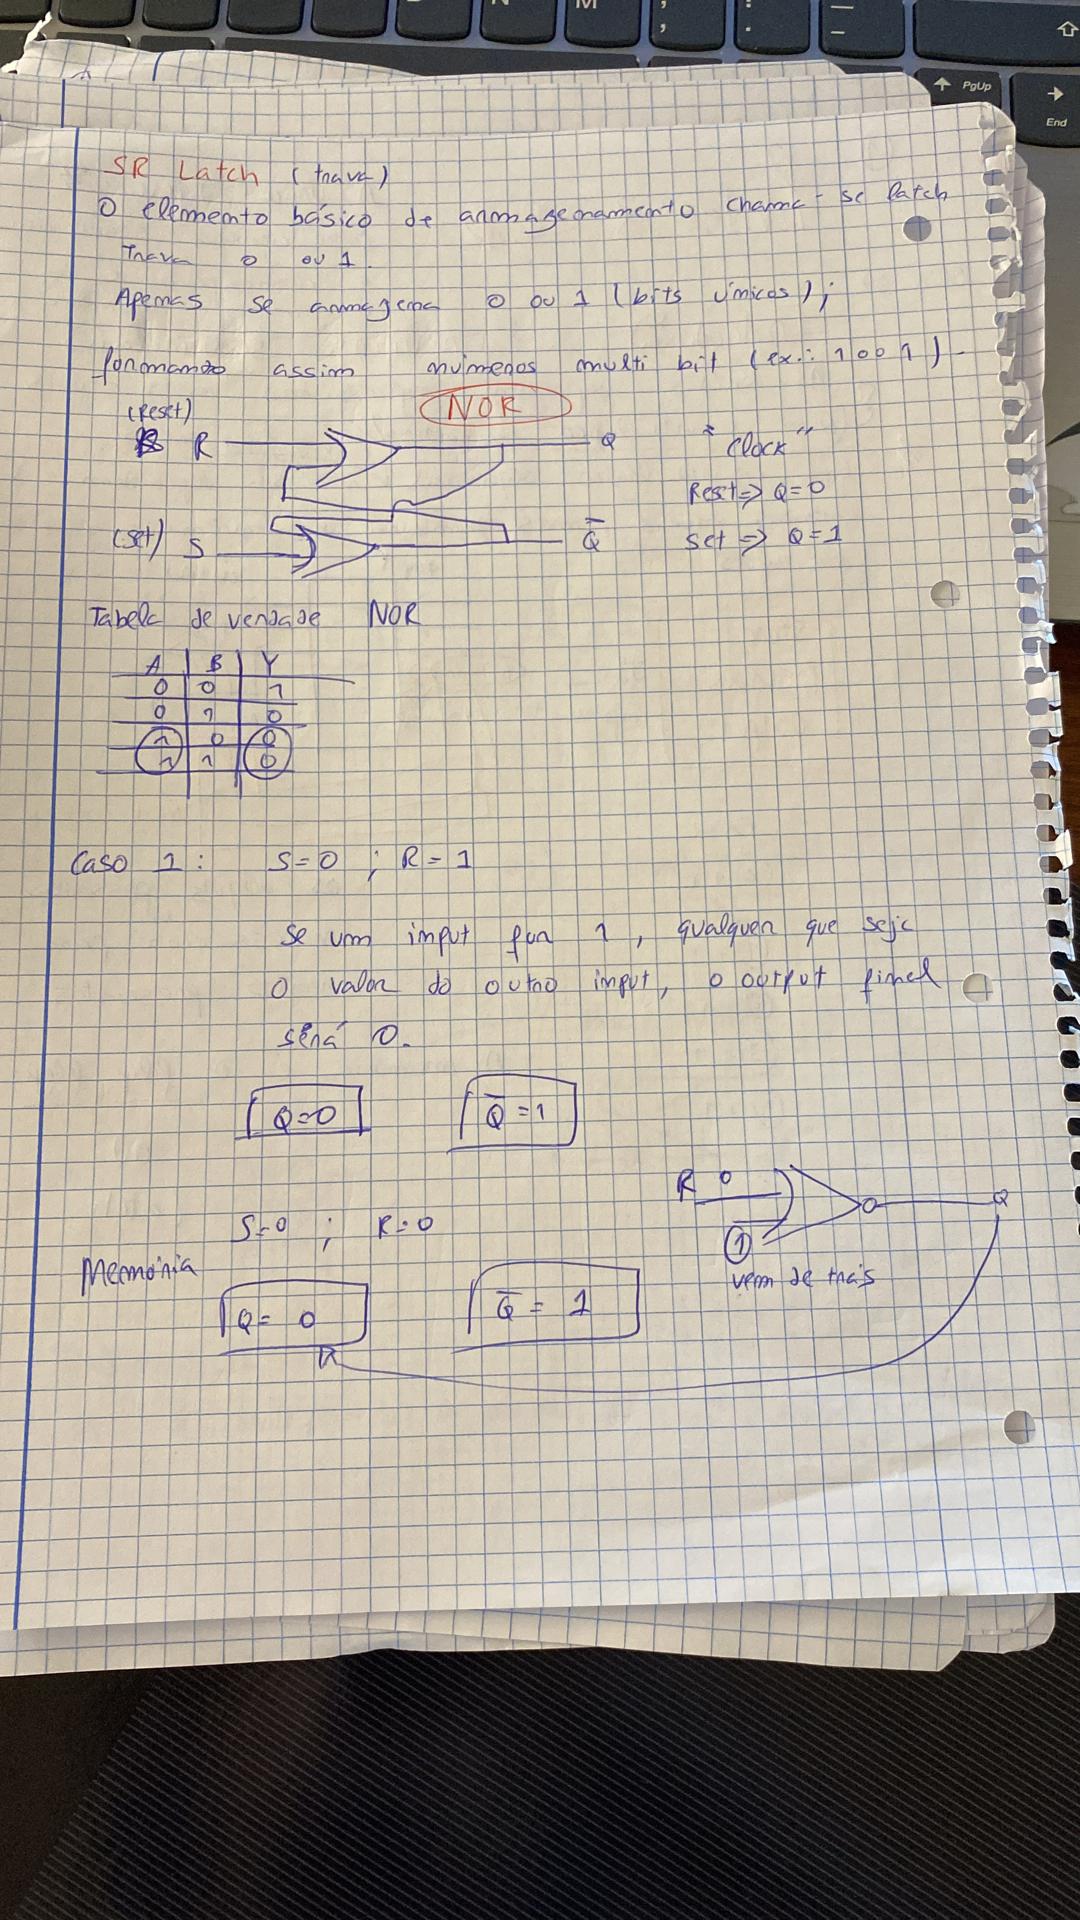 PgUp
End
SR Latch (trava)
O elemento básico de armazenamento chama-se latch
Trava 0 ou 1.
Apenas se armazena 0 ou 1 (bits únicos);
formando assim números multi bit (ex.: 1001)
(Reset)
NOR
R
Q
"Clock"
Reset => Q=0
(set) S
Q̅
Set => Q=1
Tabela de verdade NOR
A B Y
0 0 1
0 1 0
1 0 0
1 1 0
Caso 1: S=0 ; R=1
Se um input for 1, qualquer que seja
o valor do outro input, o output final
será 0.
Q=0 Q̅=1
R 0
Q
S=0 ; R=0
1
Memória
vem de trás
Q= 0 Q̅ = 1